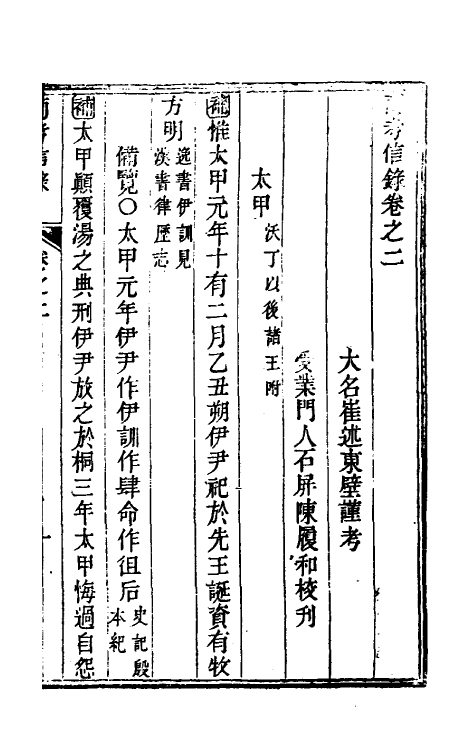 考信錄卷之二
大名崔述東壁謹考
受業門人石屏陳履和校刊
太甲 沃丁以後諸王附
補惟太甲元年十有二月乙丑朔伊尹祀於先王誕資有牧
方明 逸書伊訓見漢書律歷志
備覽○太甲元年伊尹作伊訓作肆命作徂后 史記殷本紀
補太甲顛覆湯之典刑伊尹放之於桐三年太甲悔過自怨
考信錄 卷之二